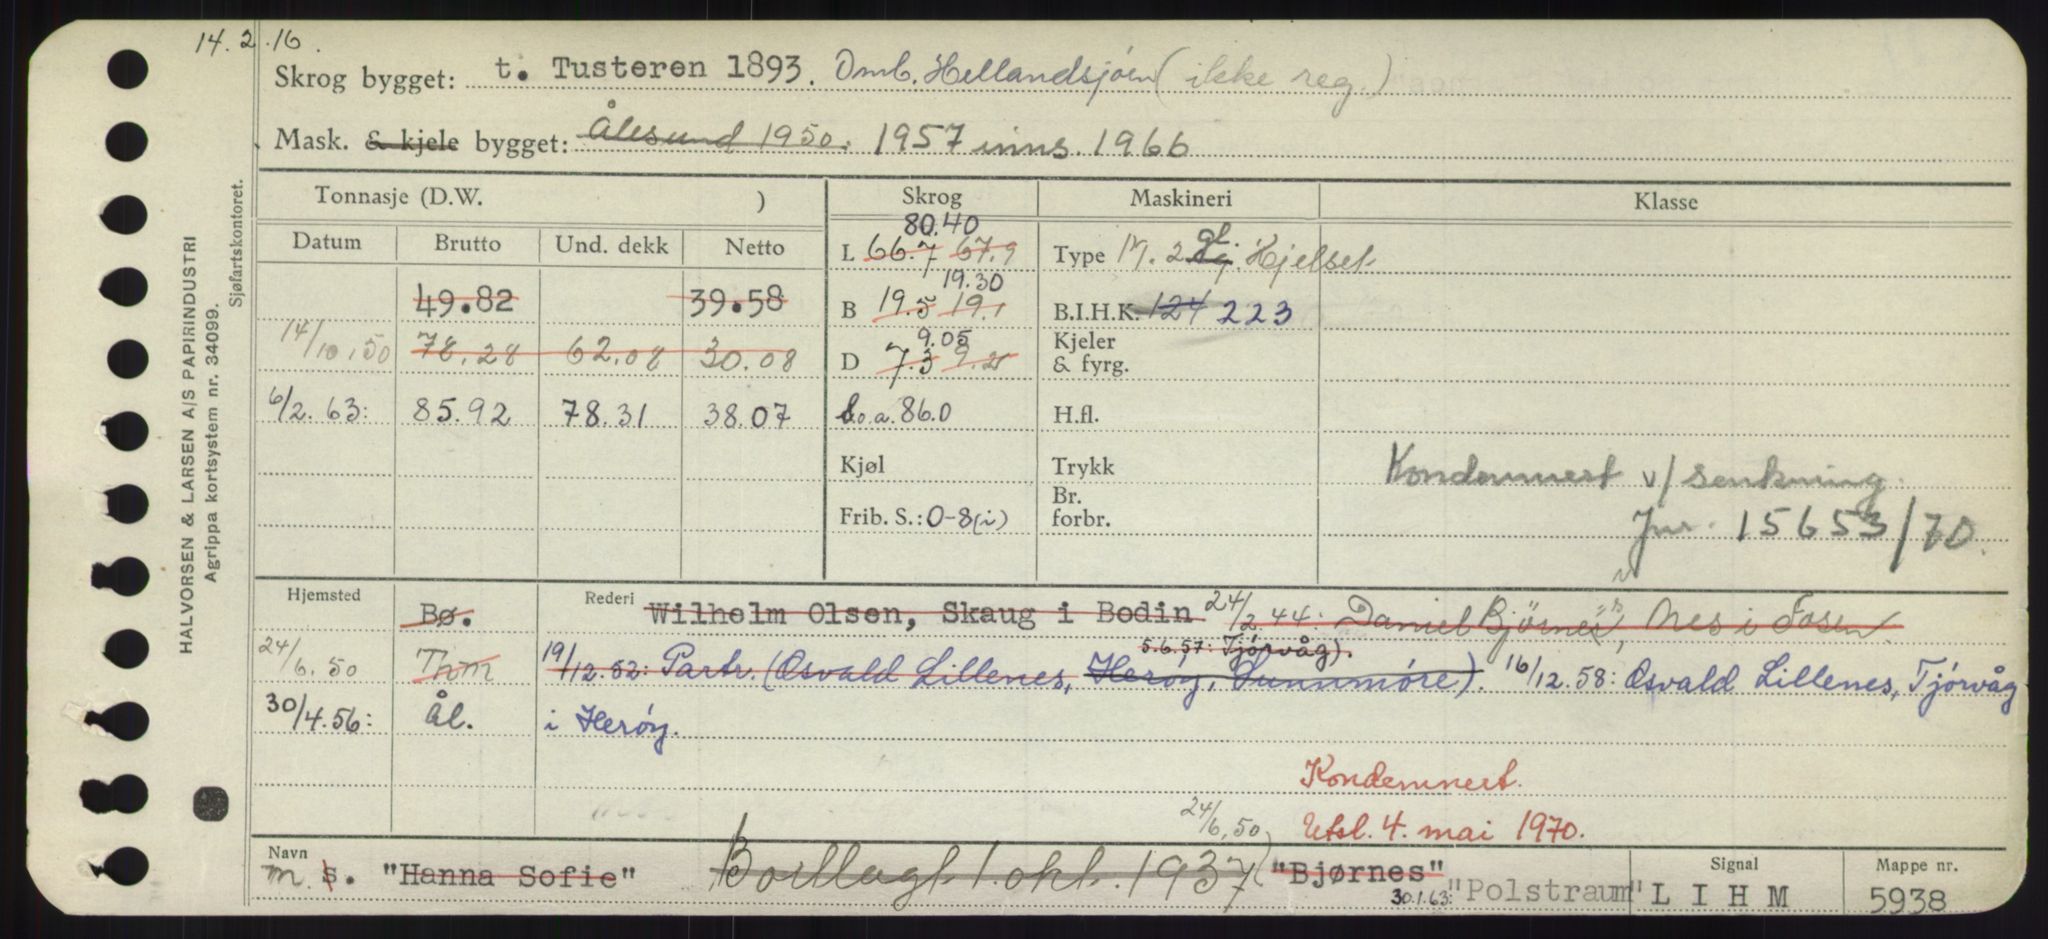 14.2.16.
Skrog bygget: t. Tusteren 1893. Omb. Hellandsjøen (ikke reg.)
Mask. & kjele bygget: Ålesund 1950. 1957 inns. 1966
Tonnasje (D.W. ) Skrog Maskineri Klasse
80.40
Datum Brutto Und. dekk Netto L 66.7 67.9 Type M. 2 gl. Kjelset
19.30
49.82 39.58 B 19.5 19.1 B.I.H.K. 124 223
9.05 Kjeler
14/10.50 78.28 62.08 30.08 D 7.3 9.25 & fyrg.
6/2.63: 85.92 78.31 38.07 L.o.a. 86.0 H.fl.
Kjøl Trykk Kondemnert v/ senkning
Br.
Frib. S.: 0-8(i) forbr. Jnr. 15653/70.
Hjemsted Bø. Rederi Wilhelm Olsen, Skaug i Bodin 24/2 44: Daniel Bjørnes, Nes i Fosen.
5.6.57: Tjørvåg).
24/6.50 Thm 19/12.52: Partr. (Osvald Lillenes, Herøy, Sunnmøre). 16/12.58: Osvald Lillenes, Tjørvåg
30/4.56: Ål. i Herøy.
Kondemnert.
24/6.50 Utsl. 4. mai 1970.
Navn Signal Mappe nr.
m. s. "Hanna Sofie" Bortlagt 1. okt. 1937 "Bjørnes"
30.1.63: "Polstraum" L I H M 5938
HALVORSEN & LARSEN A/S PAPIRINDUSTRI
Agrippa kortsystem nr. 34099.
Sjøfartskontoret.